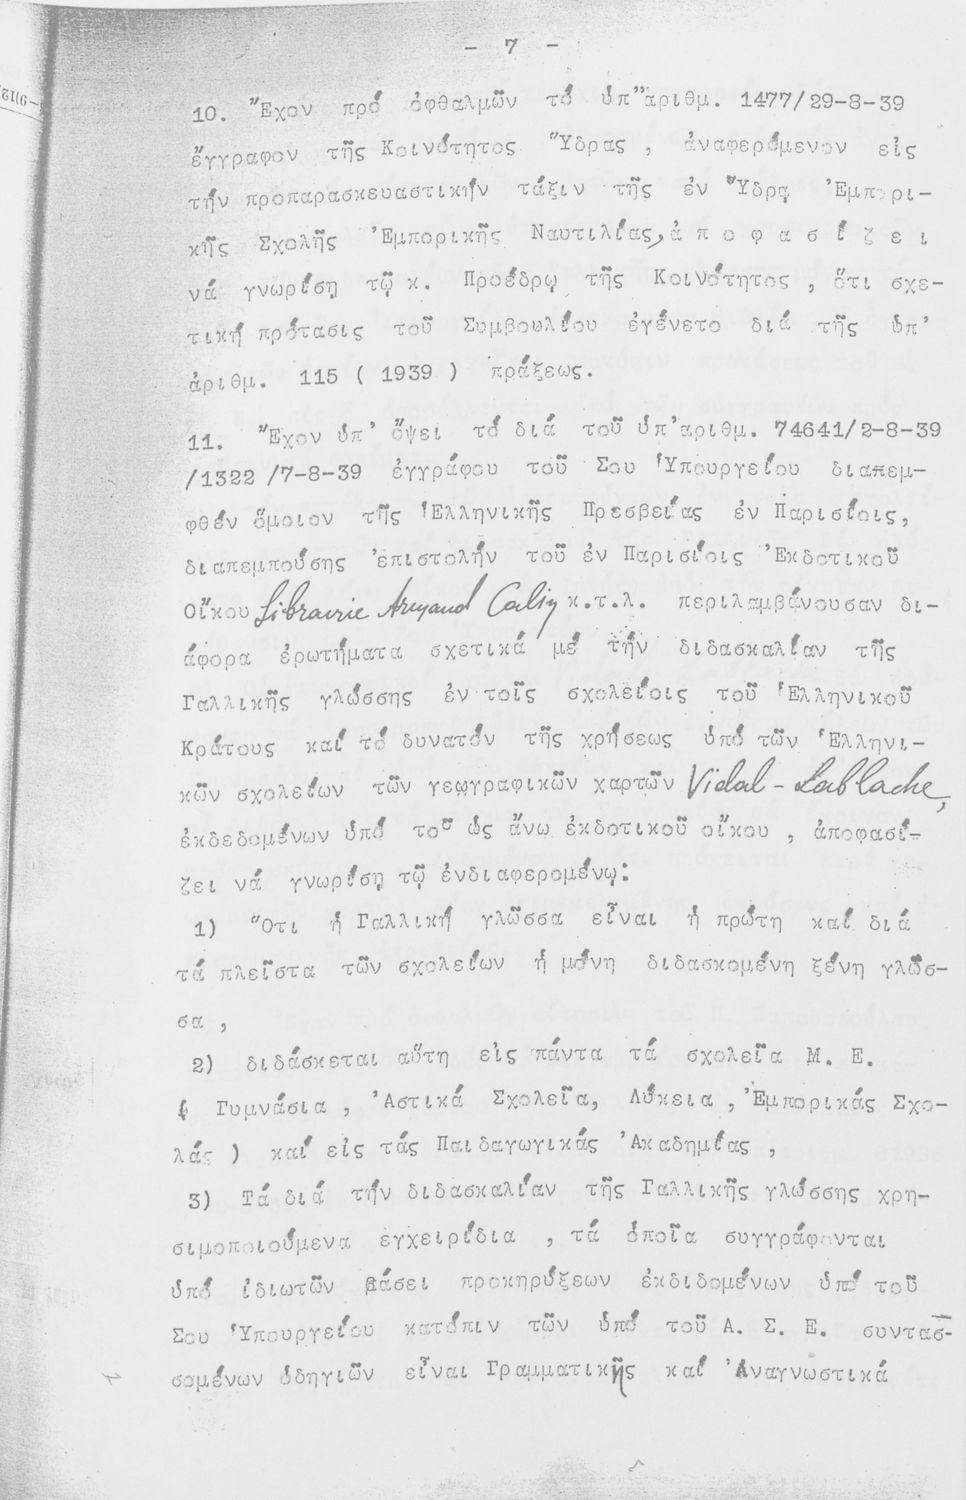 - 7 -
10. Ἔχον πρό ὀφθαλμῶν τό ὑπ"ἀριθμ. 1477/29-8-39
ἔγγραφον τῆς Κοινότητος Ὕδρας , ἀναφερόμενον εἰς
τήν προπαρασκευαστικήν τάξιν τῆς ἐν Ὕδρᾳ Ἐμπορι-
κῆς Σχολῆς Ἐμπορικῆς Ναυτιλίας, ἀ π ο φ α σ ί ζ ε ι
νά γνωρίσῃ τῷ κ. Προέδρῳ τῆς Κοινότητος , ὅτι σχε-
τική πρότασις τοῦ Συμβουλίου ἐγένετο διά τῆς ὑπ'
ἀριθμ. 115 ( 1939 ) πράξεως.
11. Ἔχον ὑπ' ὄψει τό διά τοῦ ὑπ'αριθμ. 74641/2-8-39
/1322 /7-8-39 ἐγγράφου τοῦ Σου Ὑπουργείου διαπεμ-
φθέν ὅμοιον τῆς Ἑλληνικῆς Πρεσβείας ἐν Παρισίοις,
διαπεμπούσης ἐπιστολήν τοῦ ἐν Παρισίοις Ἐκδοτικοῦ
Οἴκου Librairie Armand Colin κ.τ.λ. περιλαμβάνουσαν δι-
άφορα ἐρωτήματα σχετικά μέ τήν διδασκαλίαν τῆς
Γαλλικῆς γλώσσης ἐν τοῖς σχολείοις τοῦ Ἑλληνικοῦ
Κράτους καί τό δυνατόν τῆς χρήσεως ὑπό τῶν Ἑλληνι-
κῶν σχολείων τῶν γεωγραφικῶν χαρτῶν Vidal - Lablache,
ἐκδεδομένων ὑπό τοῦ ὡς ἄνω ἐκδοτικοῦ οἴκου , ἀποφασί-
ζει νά γνωρίσῃ τῷ ἐνδιαφερομένῳ:
1) Ὅτι ἡ Γαλλική γλῶσσα εἶναι ἡ πρώτη καί διά
τά πλεῖστα τῶν σχολείων ἡ μόνη διδασκομένη ξένη γλῶσ-
σα ,
2) διδάσκεται αὕτη εἰς πάντα τά σχολεῖα Μ. Ε.
( Γυμνάσια , Ἀστικά Σχολεῖα, Λύκεια , Ἐμπορικάς Σχο-
λάς ) καί εἰς τάς Παιδαγωγικάς Ἀκαδημίας ,
3) Τά διά τήν διδασκαλίαν τῆς Γαλλικῆς γλώσσης χρη-
σιμοποιούμενα ἐγχειρίδια , τά ὁποῖα συγγράφονται
ὑπό ἰδιωτῶν βάσει προκηρύξεων ἐκδιδομένων ὑπό τοῦ
Σου Ὑπουργείου κατόπιν τῶν ὑπό τοῦ Α. Σ. Ε. συντασ-
σομένων ὁδηγιῶν εἶναι Γραμματικῆς καί Ἀναγνωστικά